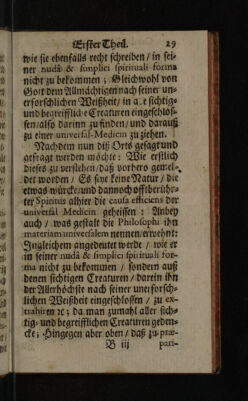 Erster Theil. 29
wie sie ebenfalls recht schreiben / in sei-
ner nudâ & simplici spirituali forma
nicht zu bekommen ; Gleichwohl von
Gott dem Allmächtigen nach seiner un-
erforschlichen Weißheit / in alle sichtig-
und begreiffliche Creaturen eingeschlos-
sen / also darinn zu finden / und darauß
zu einer universal-Medicin zu ziehen.
Nachdem nun diß Orts gesagt und
gefragt werden möchte : Wie erstlich
dieses zu verstehen / daß vorhero gemel-
det worden / Es seye keine Natur / die
etwas würcke / und dannoch offtberühr-
ter Spiritus alhier die causa efficiens der
universal Medicin geheissen : Anbey
auch / was gestalt die Philosophi ihn
materiam universalem nennen / erwehnt
Ingleichem angedeutet werde / wie er
in seiner nudâ & simplici spirituali for-
ma nicht zu bekommen / sondern auß
denen sichtigen Creaturen / darein ihn
der Allerhöchste nach seiner unerforsch-
lichen Weißheit eingeschlossen / zu ex-
trahiren ꝛc ; da man zumahl aller sich-
tig- und begreifflichen Creaturen geden-
cke ; Hingegen aber oben / daß zu præ-
B iij pari-